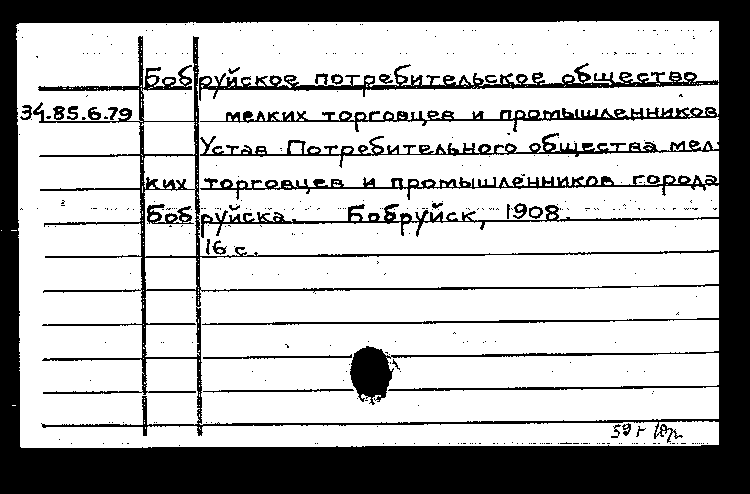 Бобруйское потребительское общество
34.85.6.79 мелких торговцев и промышленников
Устав Потребительного общества мел-
ких торговцев и промышленников города
Бобруйска. Бобруйск, 1908.
16 с.
59 г